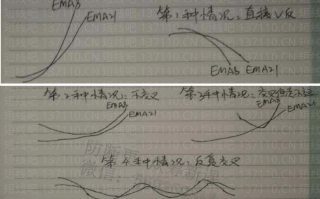 EMA8
EMA21
第1种情况:直接V反
EMA8 EMA21
第2种情况:不交叉
EMA8
EMA21
第3种情况:
EMA8
EMA21
第4种情况:反复交叉